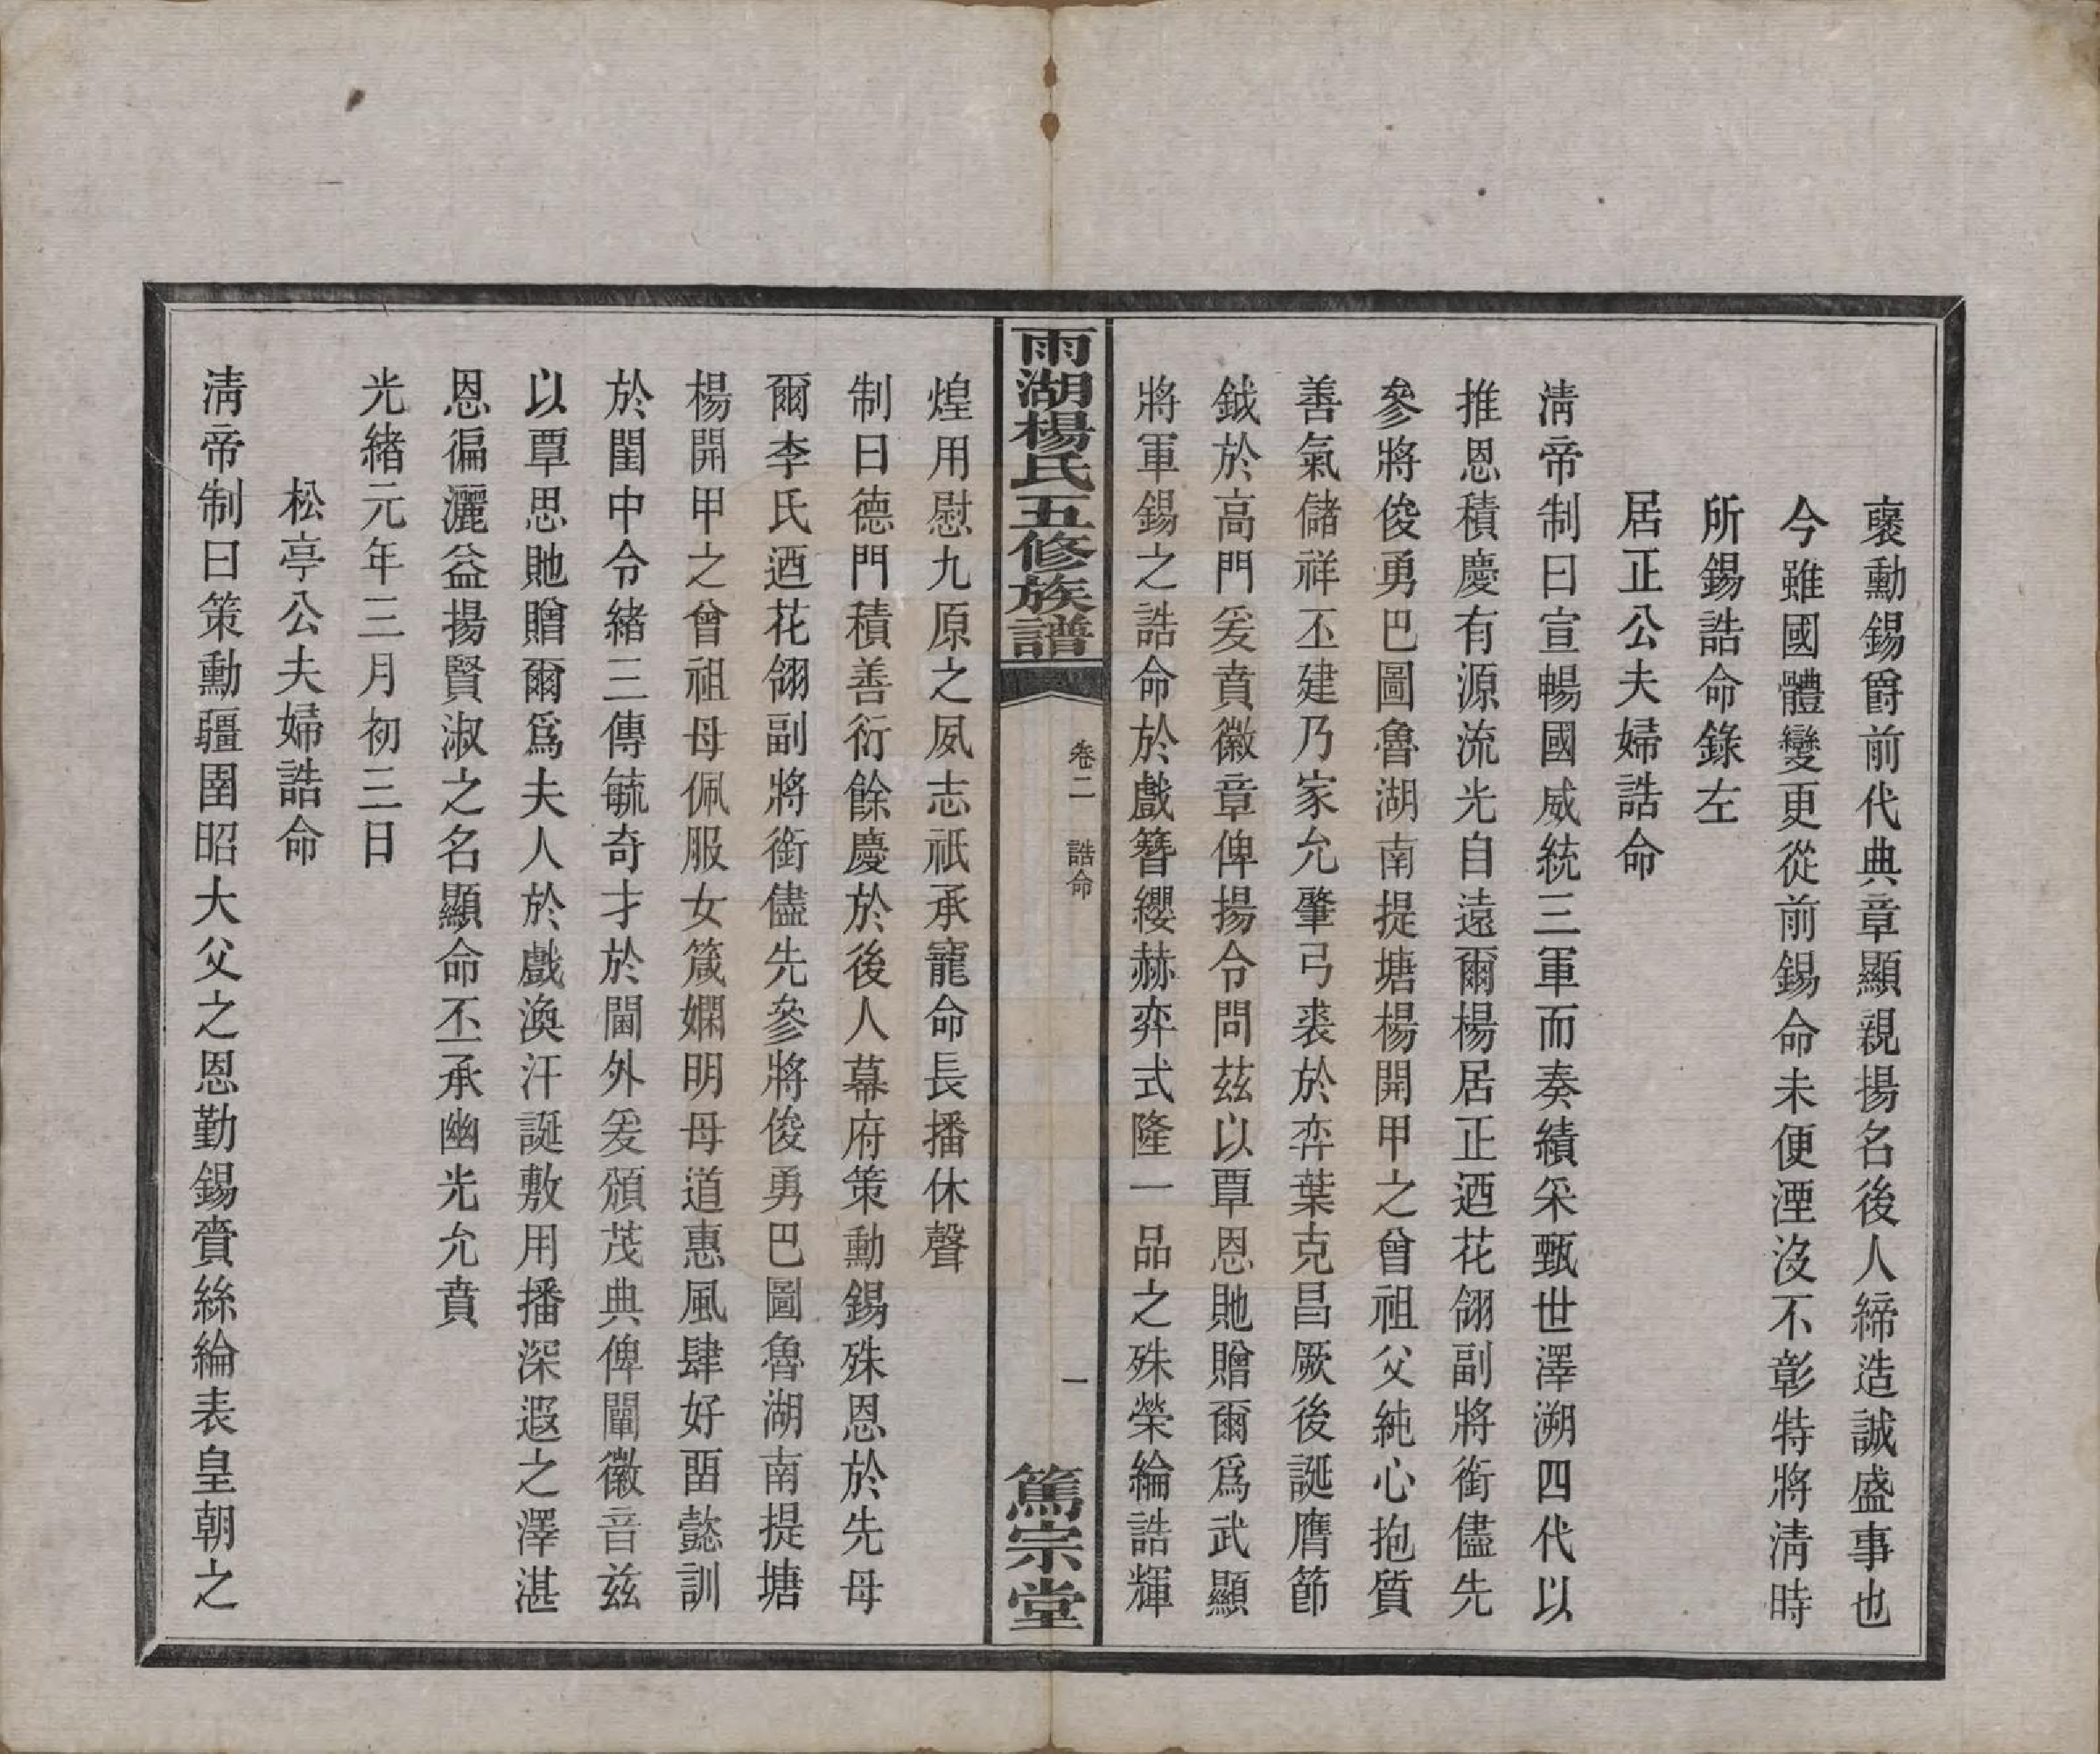 襃勳錫爵前代典章顯親揚名後人締造誠盛事也
今雖國體變更從前錫命未便湮沒不彰特將淸時
所錫誥命錄左
居正公夫婦誥命
淸帝制曰宣暢國威統三軍而奏績采甄世澤溯四代以
推恩積慶有源流光自遠爾楊居正迺花翎副將銜儘先
參將俊勇巴圖魯湖南提塘楊開甲之曾祖父純心抱質
善氣儲祥丕建乃家允肇弓裘於弈葉克昌厥後誕膺節
鉞於高門爰賁徽章俾揚令問茲以覃恩貤贈爾爲武顯
將軍錫之誥命於戲簪纓赫弈式隆一品之殊榮綸誥輝
雨湖楊氏五修族譜
卷二 誥命
一
篤宗堂
煌用慰九原之夙志祇承寵命長播休聲
制曰德門積善衍餘慶於後人幕府策勳錫殊恩於先母
爾李氏迺花翎副將銜儘先參將俊勇巴圖魯湖南提塘
楊開甲之曾祖母佩服女箴嫻明母道惠風肆好畱懿訓
於閨中令緖三傳毓奇才於閫外爰頒茂典俾闡徽音茲
以覃恩貤贈爾爲夫人於戲渙汗誕敷用播深遐之澤湛
恩徧灑益揚賢淑之名顯命丕承幽光允賁
光緖元年三月初三日
松亭公夫婦誥命
淸帝制曰策勳疆圉昭大父之恩勤錫賚絲綸表皇朝之